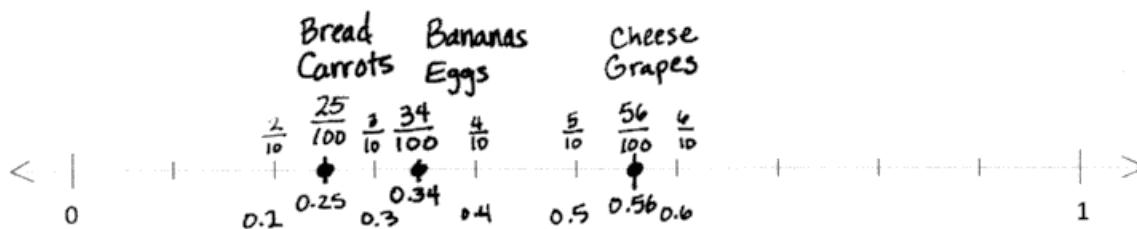 Bread Bananas Cheese
Carrots Eggs Grapes
2/10 25/100 3/10 34/100 4/10 5/10 56/100 6/10
0 0.2 0.25 0.3 0.34 0.4 0.5 0.56 0.6 1